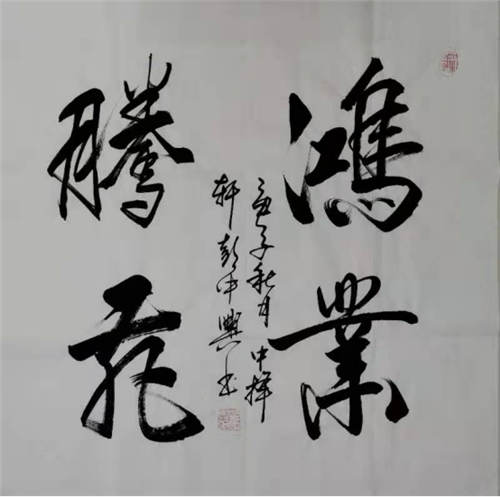 鴻業
騰飛
庚子秋月 中
軒彭中興书